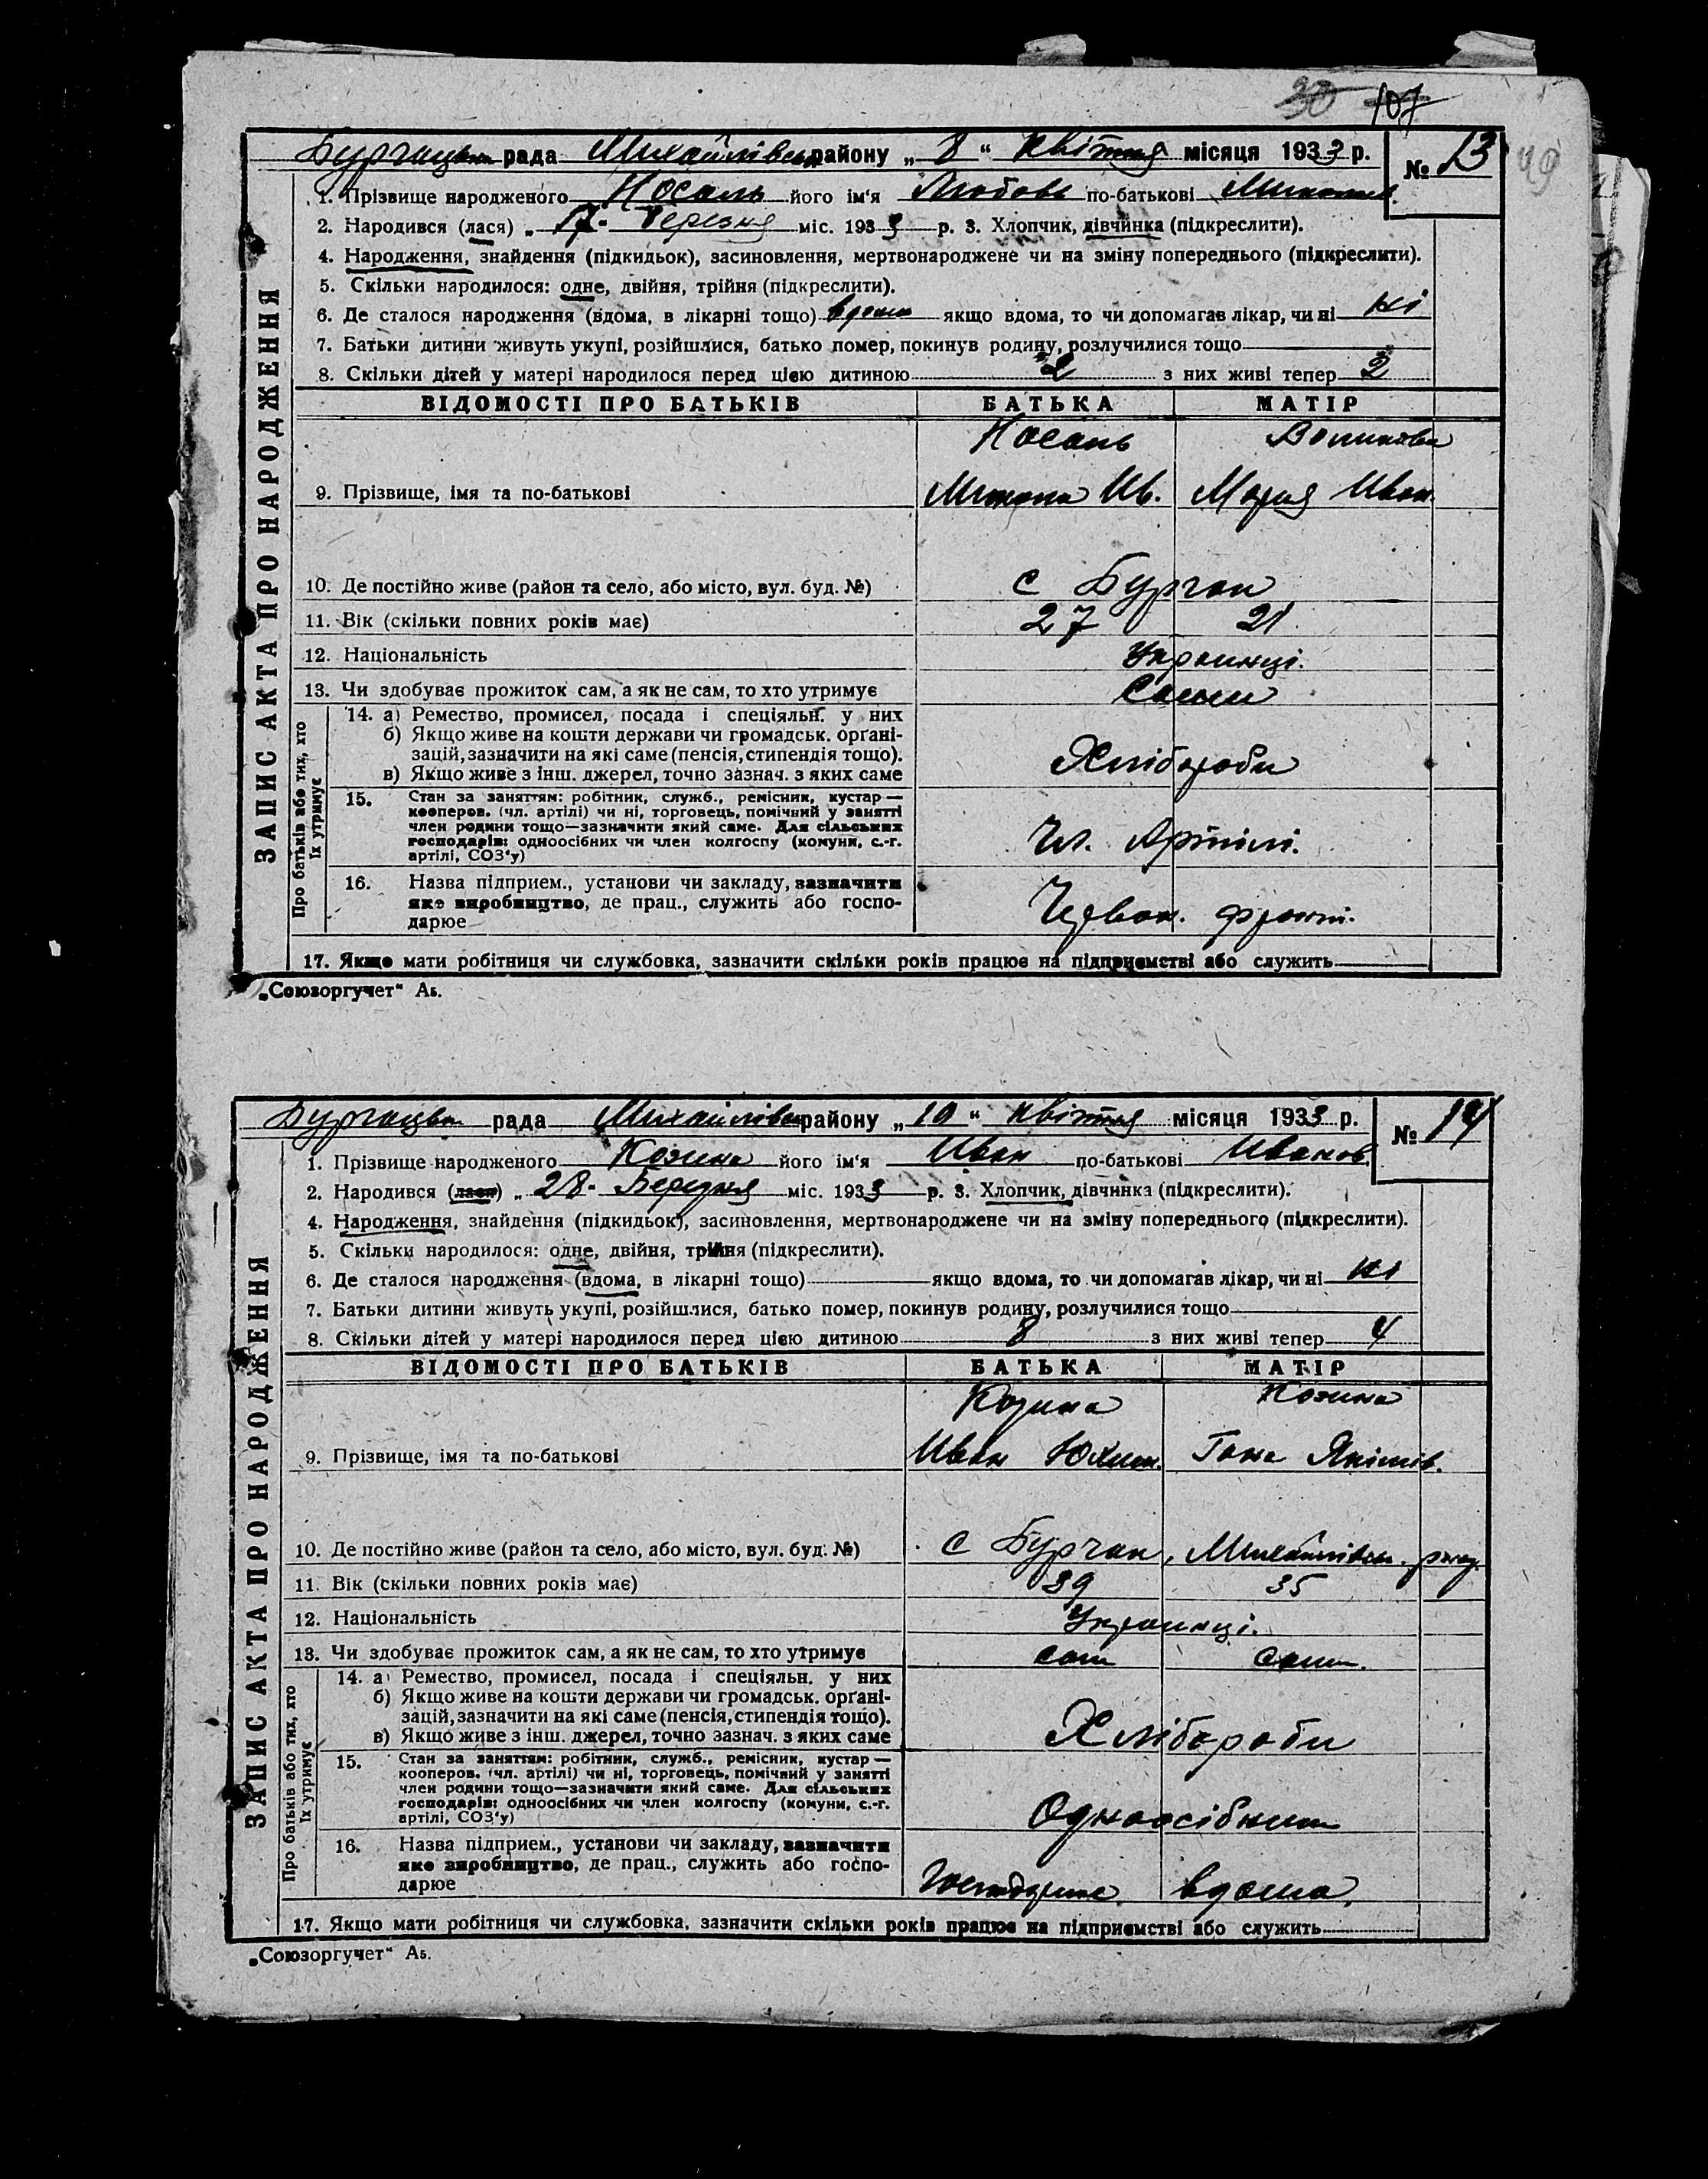 30 107
49
Бурчацька рада Михайлівськ району „ 8 “ квітня місяця 1933 р. № 13
ЗАПИС АКТА ПРО НАРОДЖЕННЯ
1. Прізвище народженого Носань його ім‘я Любовь по-батькові
2. Народився (лася) „ 17 - березня міс. 1933 р. 3. Хлопчик, дівчинка (підкреслити).
4. Народження, знайдення (підкидьок), засиновлення, мертвонароджене чи на зміну попереднього (підкреслити).
5. Скільки народилося: одне, двійня, трійня (підкреслити).
6. Де сталося народження (вдома, в лікарні тощо) вдома якщо вдома, то чи допомагав лікар, чи ні ні
7. Батьки дитини живуть укупі, розійшлися, батько помер, покинув родину, розлучилися тощо
8. Скільки дітей у матері народилося перед цією дитиною 2 з них живі тепер 2
ВІДОМОСТІ ПРО БАТЬКІВ БАТЬКА МАТІР
Носань
9. Прізвище, імя та по-батькові Микола Ив. Мария Иван.
10. Де постійно живе (район та село, або місто, вул. буд. №) с Бурчак
11. Вік (скільки повних років має) 27 21
12. Національність Украинці.
13. Чи здобуває прожиток сам, а як не сам, то хто утримує Сами
Про батьків або тих, хто їх утримує
14. а) Ремество, промисел, посада і спеціяльн. у них
б) Якщо живе на кошти держави чи громадськ. орґані-
зацій, зазначити на які саме (пенсія, стипендія тощо).
в) Якщо живе з інш. джерел, точно зазнач. з яких саме Хлібороби
15. Стан за заняттям: робітник, служб., ремісник, кустар —
кооперов. (чл. артілі) чи ні, торговець, помічний у занятті
член родини тощо—зазначити який саме. Для сільських
господарів: одноосібних чи член колгоспу (комуни, с.-г.
артілі, СОЗ‘у) Чл. Артілі.
16. Назва підприєм., установи чи закладу, зазначити
яке виробництво, де прац., служить або госпо-
дарює Червон. фронт.
17. Якщо мати робітниця чи службовка, зазначити скільки років працює на підприємстві або служить
„Союзоргучет“ Аь.
Бурчацька рада Михайлівськ району „ 10 “ квітня місяця 1933 р. № 14
ЗАПИС АКТА ПРО НАРОДЖЕННЯ
1. Прізвище народженого Козина його ім‘я Иван по-батькові Иванов.
2. Народився (лася) „ 28 - Березня міс. 1933 р. 3. Хлопчик, дівчинка (підкреслити).
4. Народження, знайдення (підкидьок), засиновлення, мертвонароджене чи на зміну попереднього (підкреслити).
5. Скільки народилося: одне, двійня, трійня (підкреслити).
6. Де сталося народження (вдома, в лікарні тощо) якщо вдома, то чи допомагав лікар, чи ні ні
7. Батьки дитини живуть укупі, розійшлися, батько помер, покинув родину, розлучилися тощо
8. Скільки дітей у матері народилося перед цією дитиною 8 з них живі тепер 4
ВІДОМОСТІ ПРО БАТЬКІВ БАТЬКА МАТІР
Козина Козина
9. Прізвище, імя та по-батькові Иван Юхим. Ганна Якімів.
10. Де постійно живе (район та село, або місто, вул. буд. №) с Бурчак, Михайлівськ. району.
11. Вік (скільки повних років має) 39 35
12. Національність Украинці.
13. Чи здобуває прожиток сам, а як не сам, то хто утримує сам сама.
Про батьків або тих, хто їх утримує
14. а) Ремество, промисел, посада і спеціяльн. у них
б) Якщо живе на кошти держави чи громадськ. орґані-
зацій, зазначити на які саме (пенсія, стипендія тощо).
в) Якщо живе з інш. джерел, точно зазнач. з яких саме Хлібороби
15. Стан за заняттям: робітник, служб., ремісник, кустар —
кооперов. (чл. артілі) чи ні, торговець, помічний у занятті
член родини тощо—зазначити який саме. Для сільських
господарів: одноосібних чи член колгоспу (комуни, с.-г.
артілі, СОЗ‘у) Одноосібники
16. Назва підприєм., установи чи закладу, зазначити
яке виробництво, де прац., служить або госпо-
дарює вдома.
17. Якщо мати робітниця чи службовка, зазначити скільки років працює на підприємстві або служить
„Союзоргучет“ Аь.